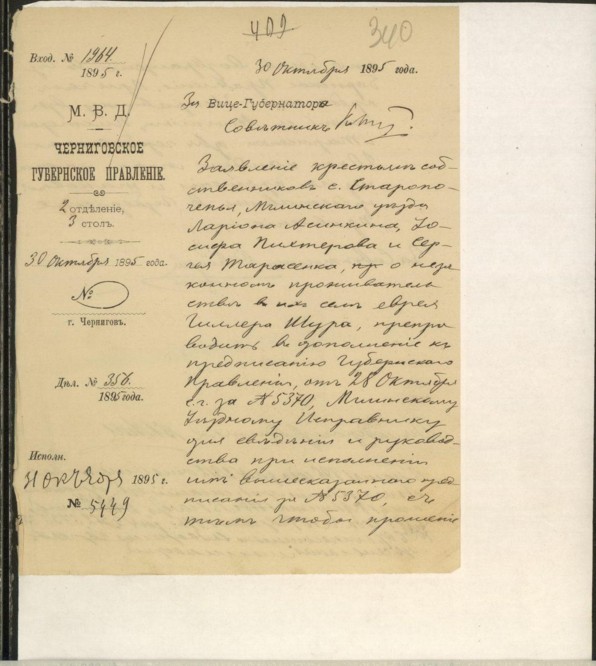 409
340
Вход. № 1964
1895 г.
30 Октября 1895 года.
М. В. Д.
ЧЕРНИГОВСКОЕ
ГУБЕРНСКОЕ ПРАВЛЕНІЕ.
2 отдѣленіе,
3 столъ.
30 Октября 1895 года.
№
г. Черниговъ.
Дѣл. № 356.
1895 года.
Исполн.
31 Октября 1895 г.
№ 5449
За Вице-Губернатора
Совѣтникъ
Заявленіе крестьянъ соб-
ственниковъ с. Старопо-
чепья, Мглинскаго уѣзда
Ларіона Асинкина, Іо-
сифа Пиктерова и Сер-
гѣя Тарасенка, о неза
конномъ проживатель
ствѣ въ ихъ селѣ еврея
Гиллера Шура, препро
водить въ дополненіе къ
предписанію Губернскаго
Правленія, отъ 28 Октября
с. г. за № 5370, Мглинскому
Уѣздному Исправнику
для свѣдѣнія и руковод-
ства при исполненіи
имъ вышесказаннаго пред
писанія за № 5370, съ
тѣмъ чтобы прошеніе